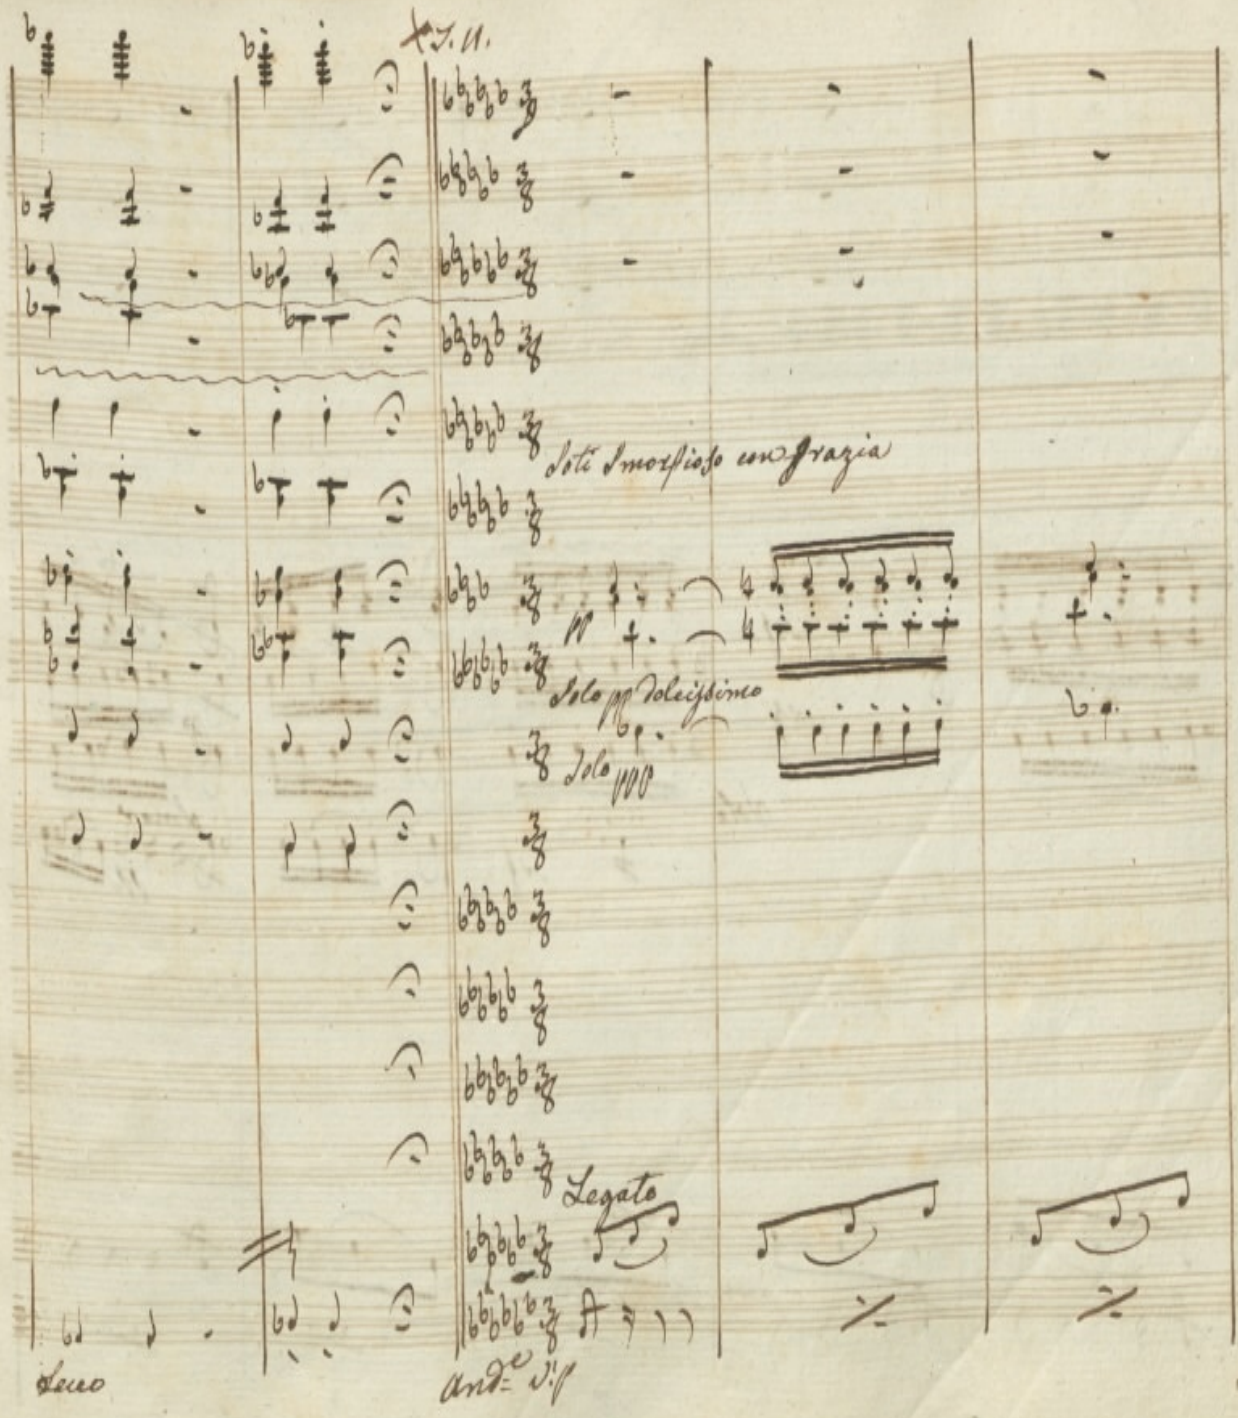 Soli Smorfioso con grazia
pp
Solo pp Dolcissimo
Solo ppp
Legato
Secco
And.e